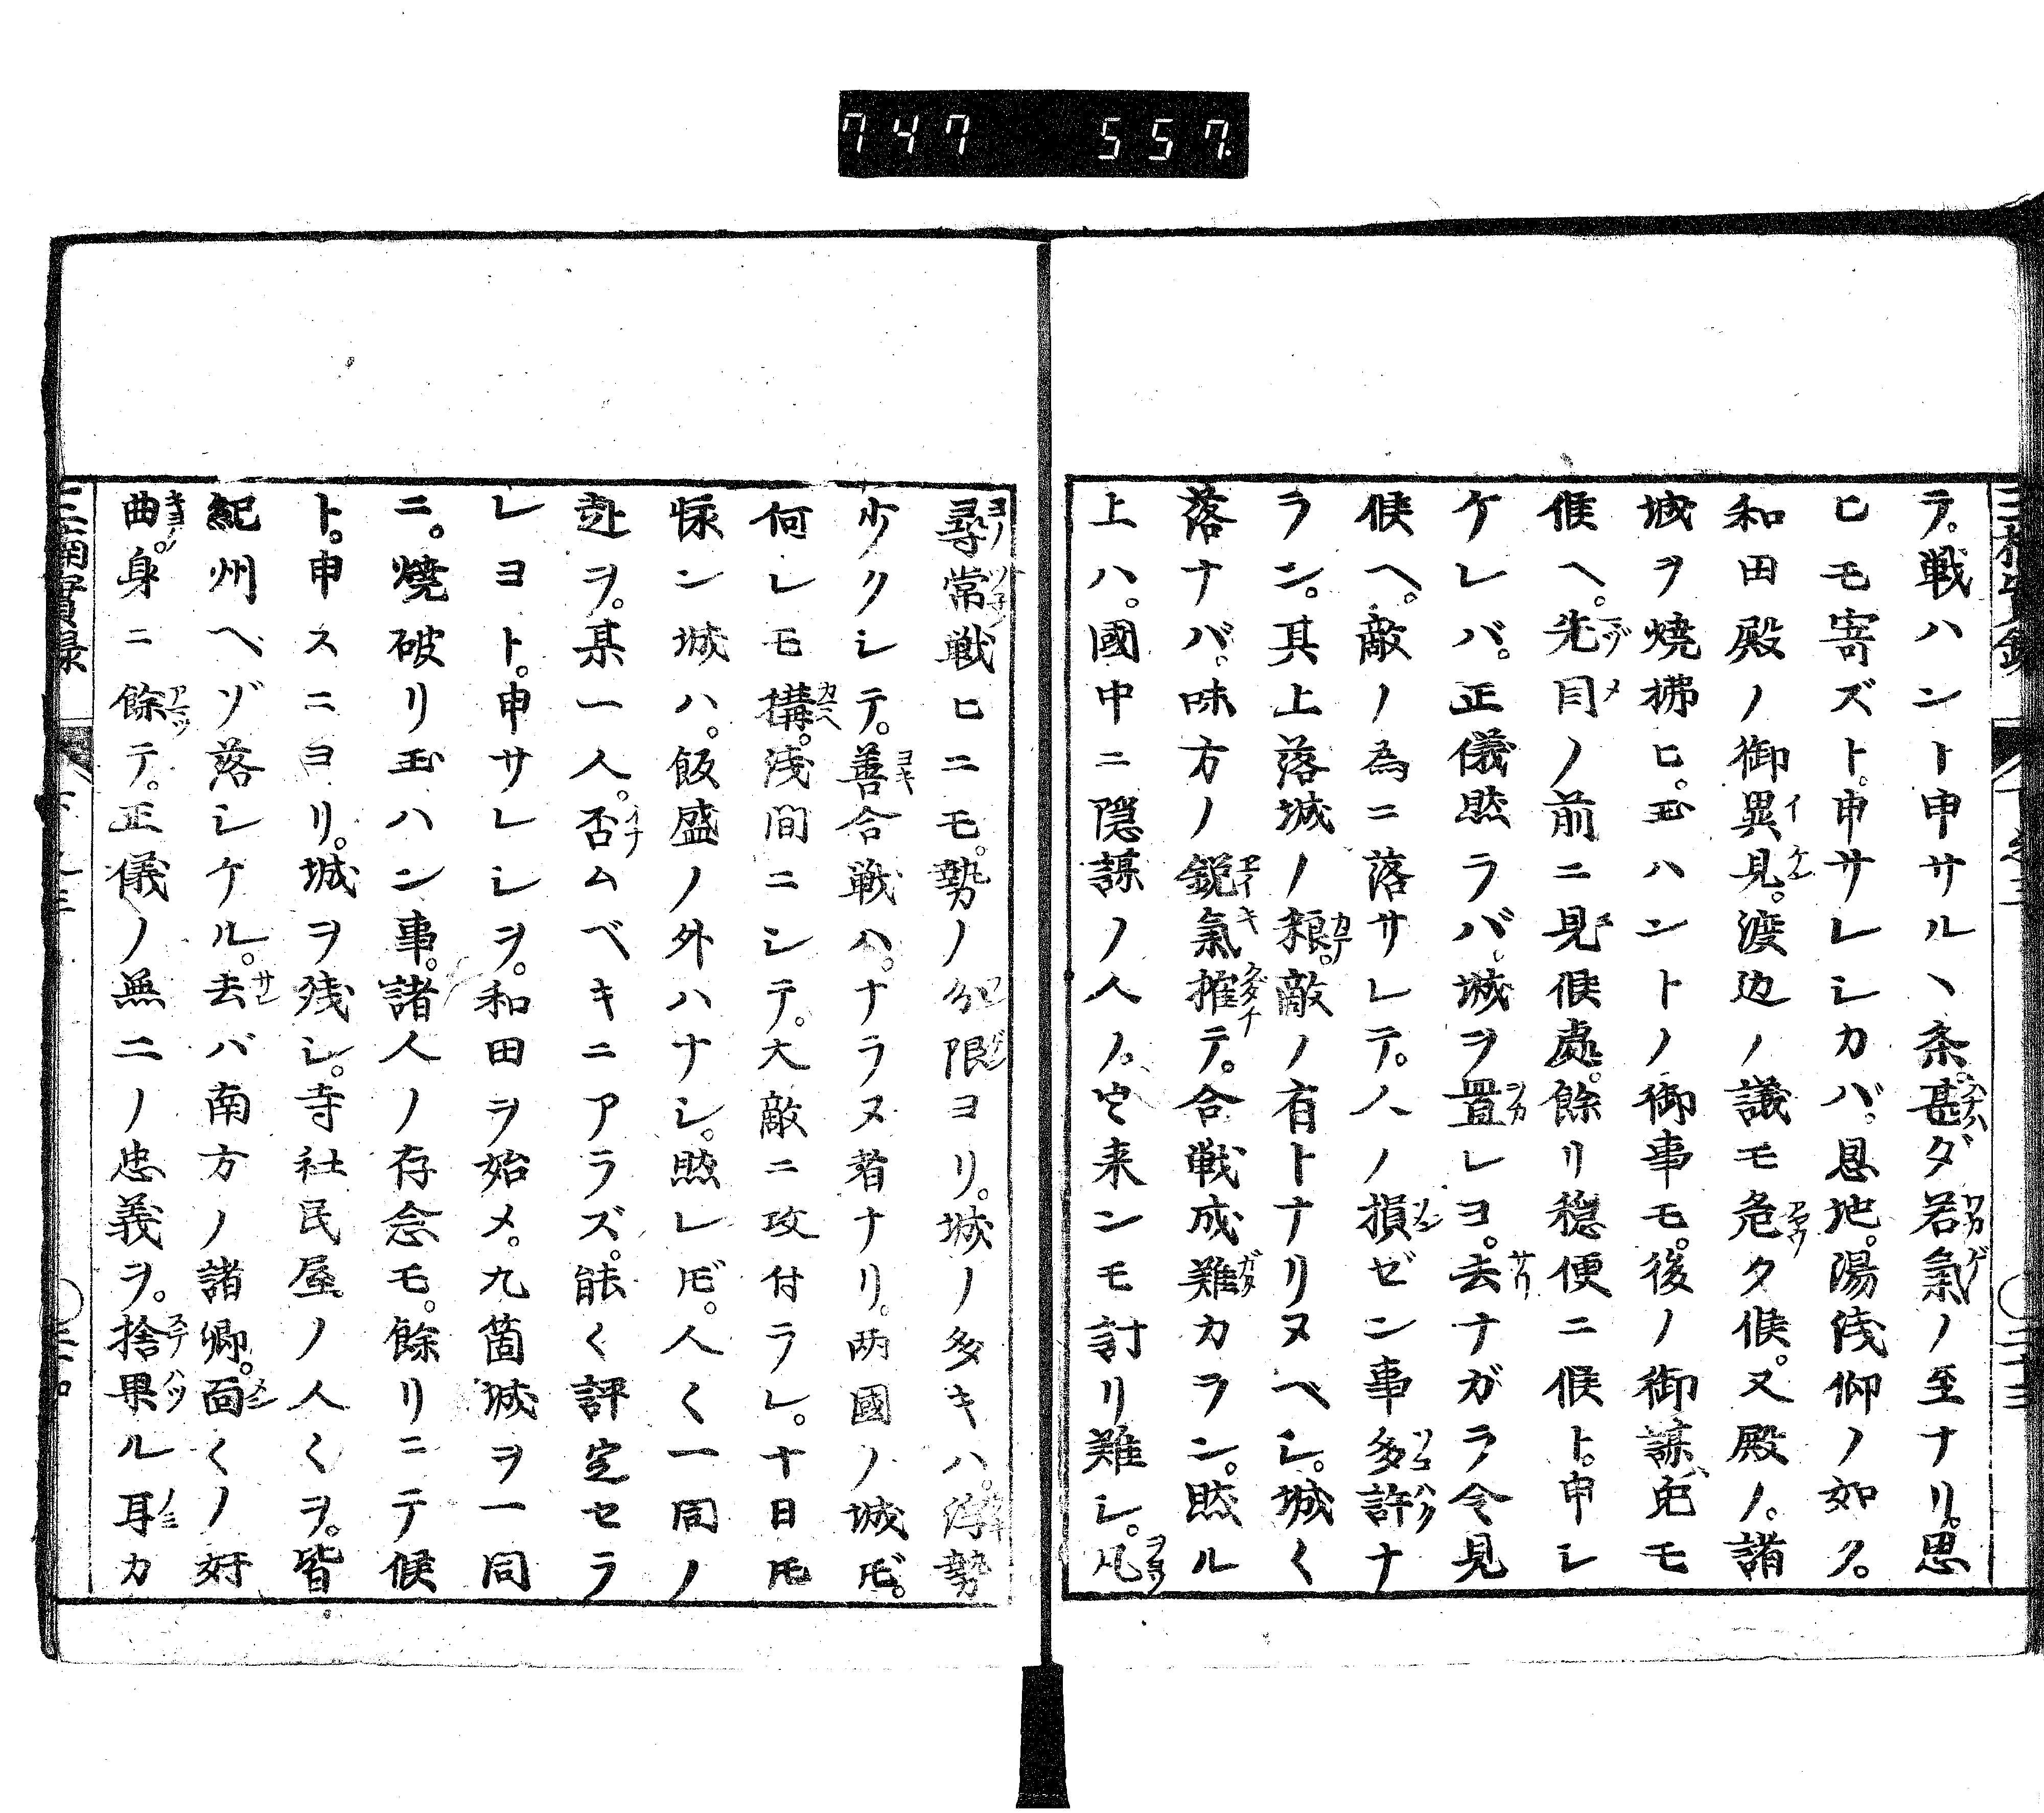 747 557
テ。戦ハント申サルヽ条。甚ダ若氣ノ至ナリ。思
ヒモ寄ズト。申サレシカバ。恩地。湯浅仰ノ如ク。
和田殿ノ御異見。渡辺ノ議モ危タ候。又殿ノ。諸
城ヲ燒拂ヒ。玉ハントノ御事モ。後ノ御謀ニモ
候ヘ。先目ノ前ニ見候處。餘リ穏便ニ候ト。申シ
ケレバ。正儀然ラバ。城ヲ置レヨ。去ナガラ令見
候ヘ。敵ノ為ニ落サレテ。人ノ損ゼン事多許ナ
ラン。其上落城ノ粮。敵ノ有トナリヌベシ。城く
落ナバ。味方ノ鋭氣摧テ。合戦成難カラン。然ル
上ハ。國中ニ隠謀ノ人ノ。出来ンモ計リ難シ。凡
尋常戦ヒニモ。勢ノ分限ヨリ。城ノ多キハ。浮勢
少クシテ。善合戦ハ。ナラヌ者ナリ。両國ノ城ヒ。
何レモ構。浅間ニシテ。大敵ニ攻付ラレ。十日㐧
怺ン城ハ。飯盛ノ外ハナシ。然レ𪜈。人く一同ノ
赴ヲ。某一人。否ムベキニアラズ。能く評定セラ
レヨト。申サレシヲ。和田ヲ始メ。九箇城ヲ一同
ニ。燒破リ玉ハン事。諸人ノ存念モ。餘リニテ候
ト。申スニヨリ。城ヲ残シ。寺社民屋ノ人くヲ。皆。
紀州ヘゾ落シケル。去バ南方ノ諸卿。面くノ好
曲。身ニ餘テ。正儀ノ無ニノ忠義ヲ。捨果ル耳カ